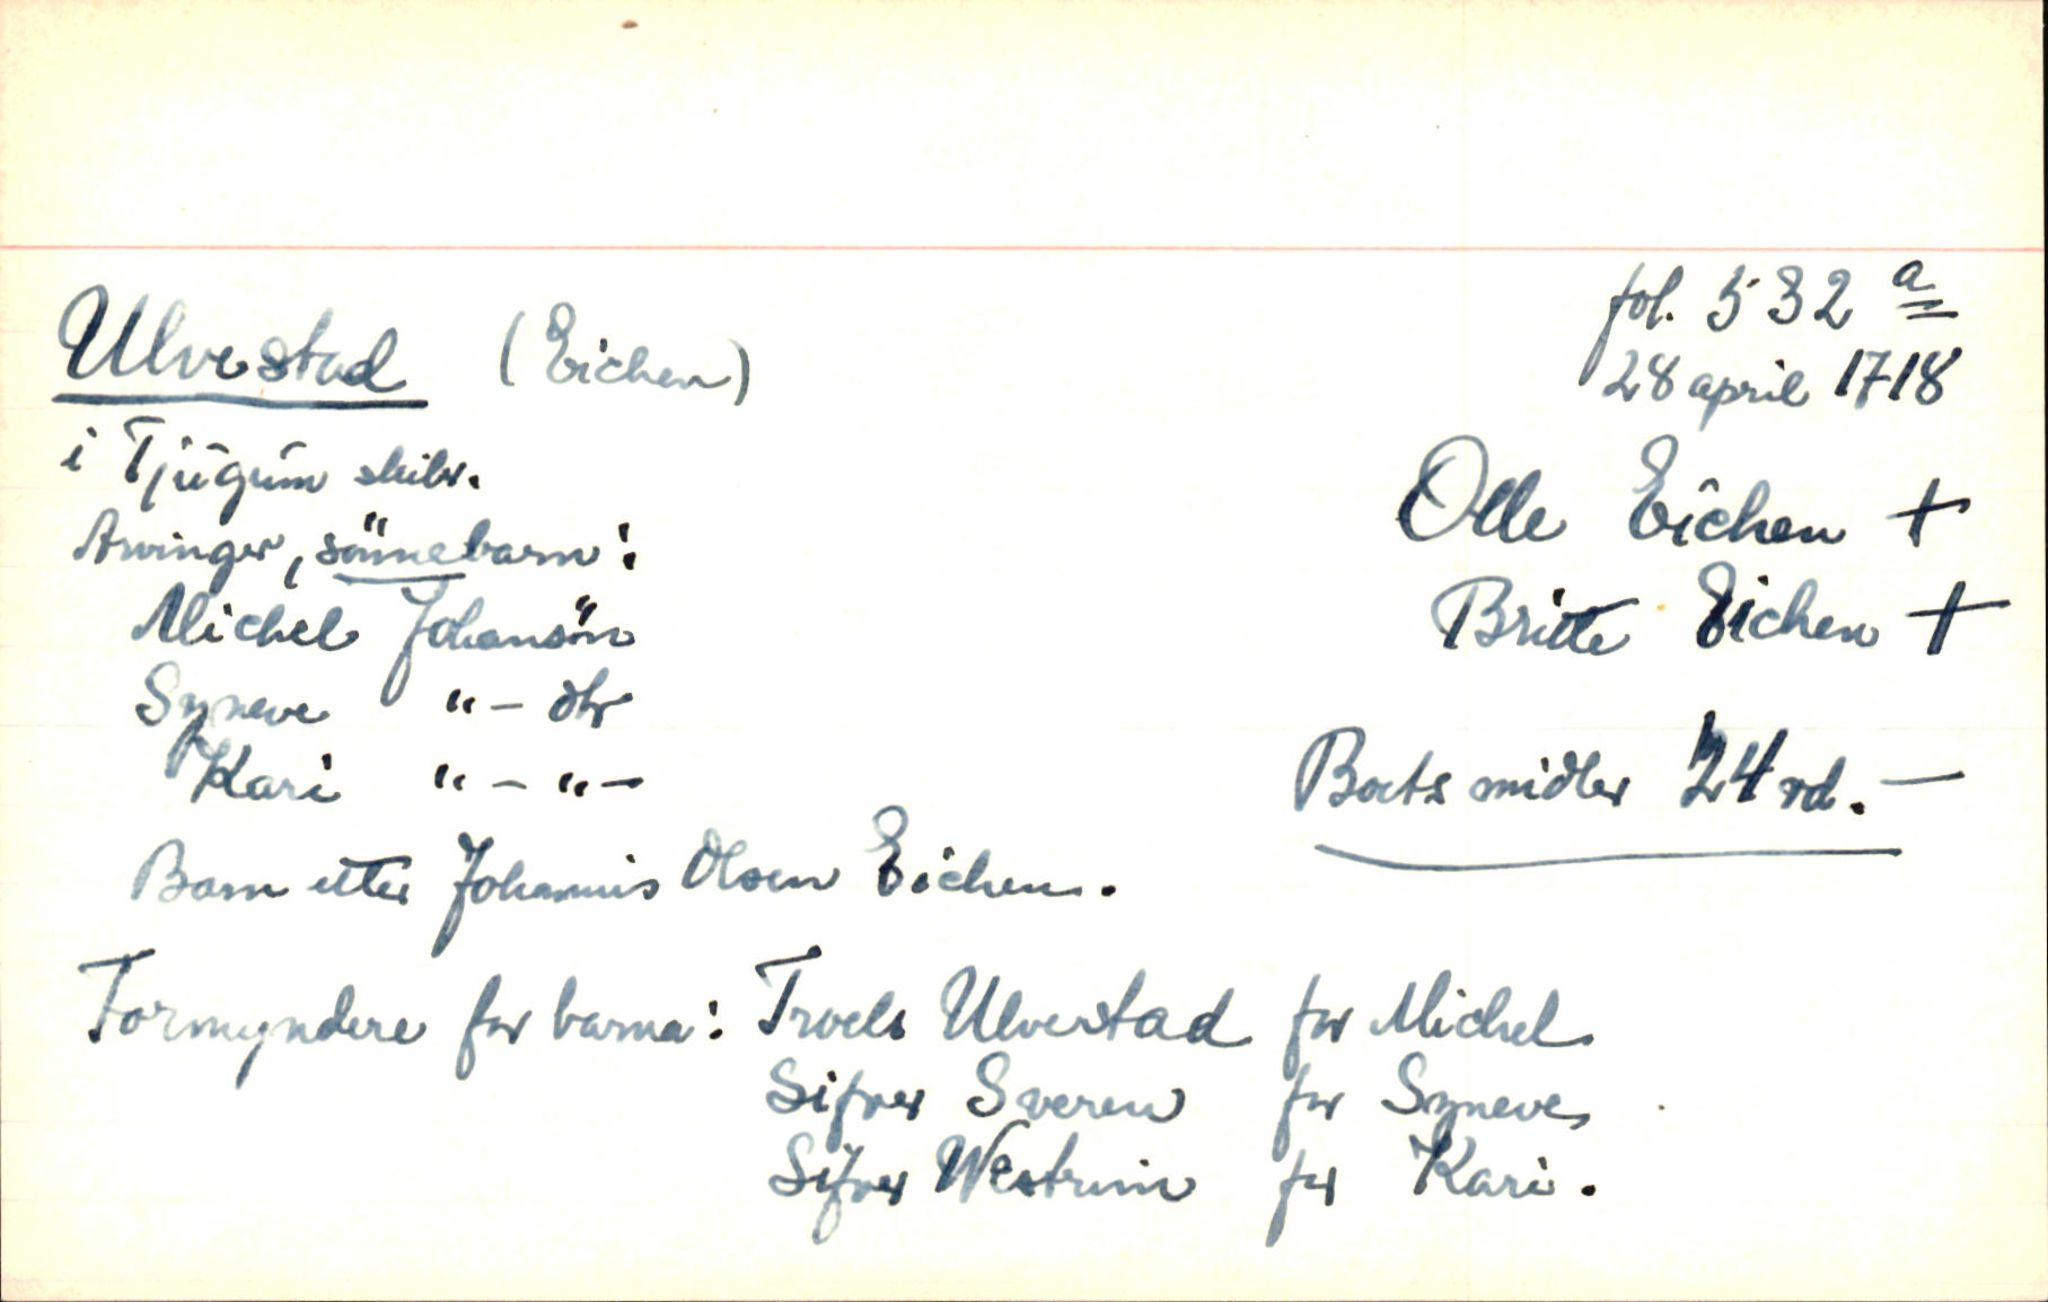 Ulvestad (Eichen)
fol. 532 a
28 april 1718
i Tjugum skibr.
Olle Eichen +
Arvinger, sönnebarn:
Britte Eichen +
Michel Johansön
Syneve " - dtr
Kari " - " -
Boets midler 24 rd. -
Barn etter Johannis Olsen Eichen.
Formyndere for barna: Troels Ulvestad for Michel
Sifver Sveren for Syneve
Sifver Westrim for Kari.